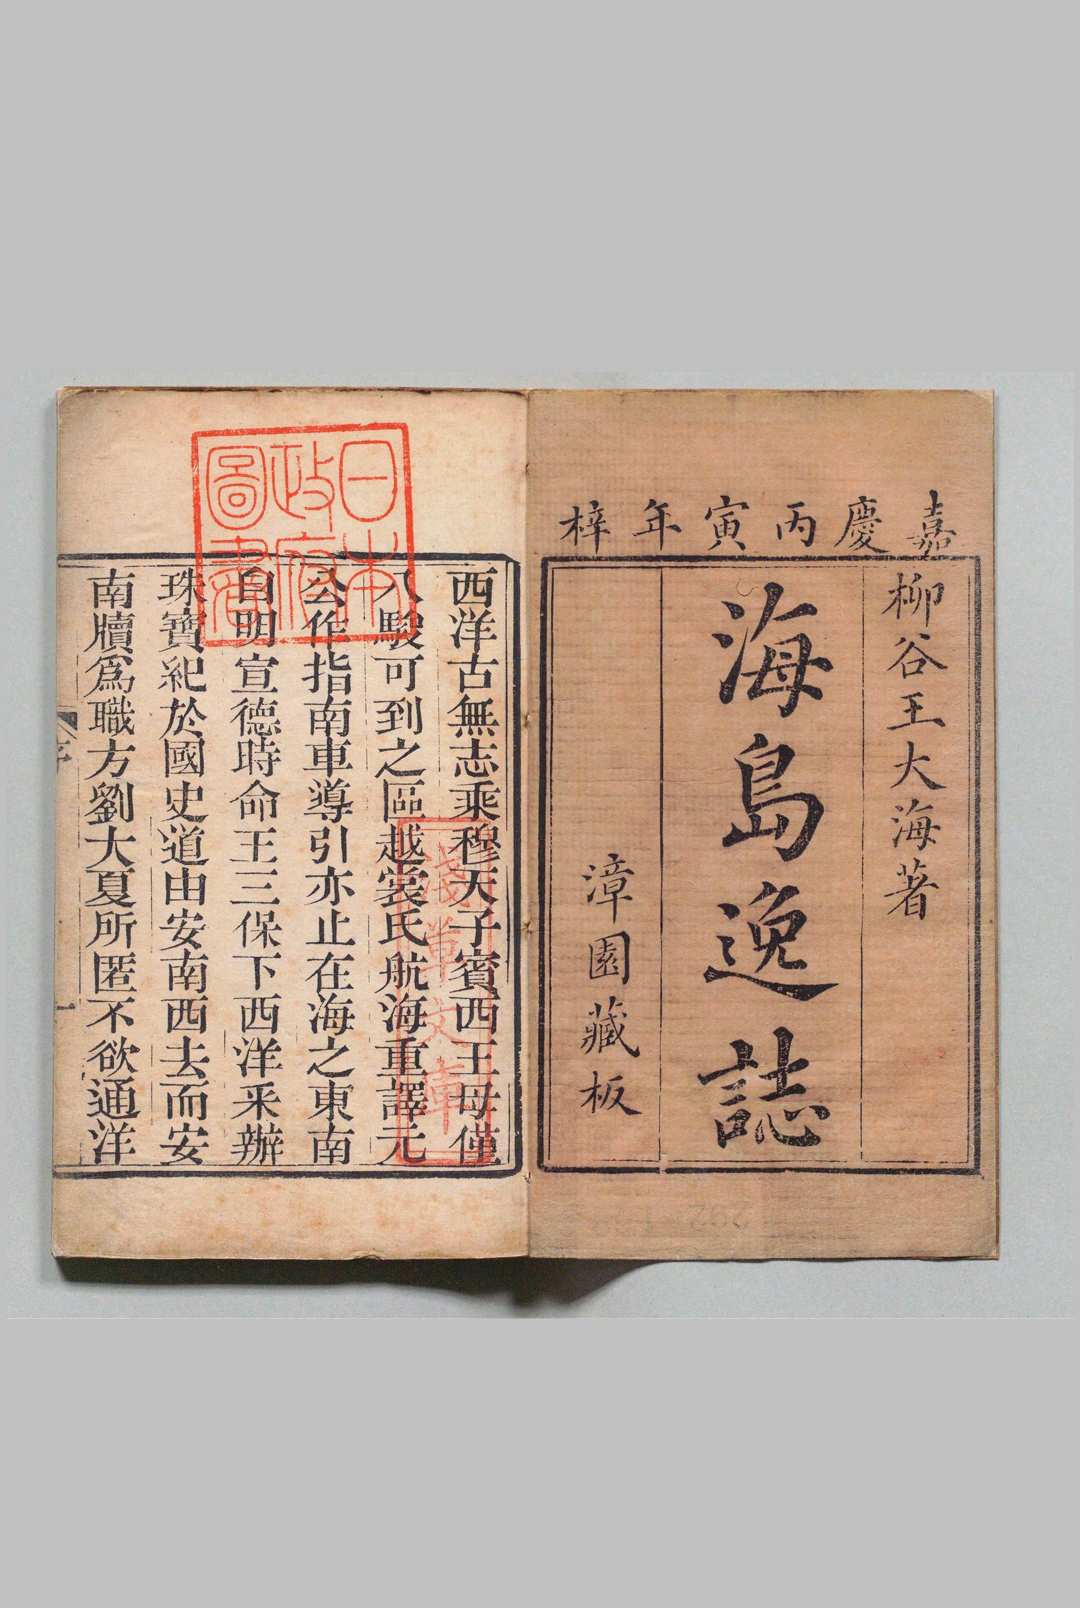 嘉慶丙寅年梓
柳谷王大海著
海島逸誌
漳園藏板
西洋古無志乘穆天子賓西王母僅
八駿可到之區越裳氏航海重譯元
公作指南車導引亦止在海之東南
自明宣德時命王三保下西洋釆辦
珠寶紀於國史道由安南西去而安
南牘爲職方劉大夏所匿不欲通洋
序
一
日本
政府
圖書
淺草文庫